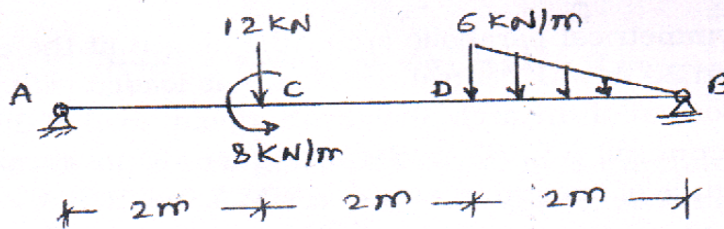 12KN 6 KN/m
A C D B
8KN/m
2m 2m 2m